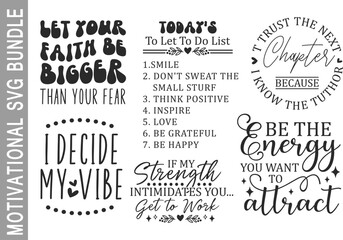 MOTIVATIONAL SVG BUNDLE
LET YOUR
FAITH BE
BIGGER
THAN YOUR FEAR
TODAY'S
To Let To Do List
1. SMILE
2. DON'T SWEAT THE
SMALL STURF
3. THINK POSITIVE
4. INSPIRE
5. LOVE
6. BE GRATEFUL
7. BE HAPPY
T TRUST THE NEXT
Chapter
BECAUSE
I KNOW THE TUTHOR
I DECIDE
MY VIBE
IF MY
Strength
INTIMIDATES YOU...
Get to Work
BE THE
Energy
YOU WANT
TO
attract